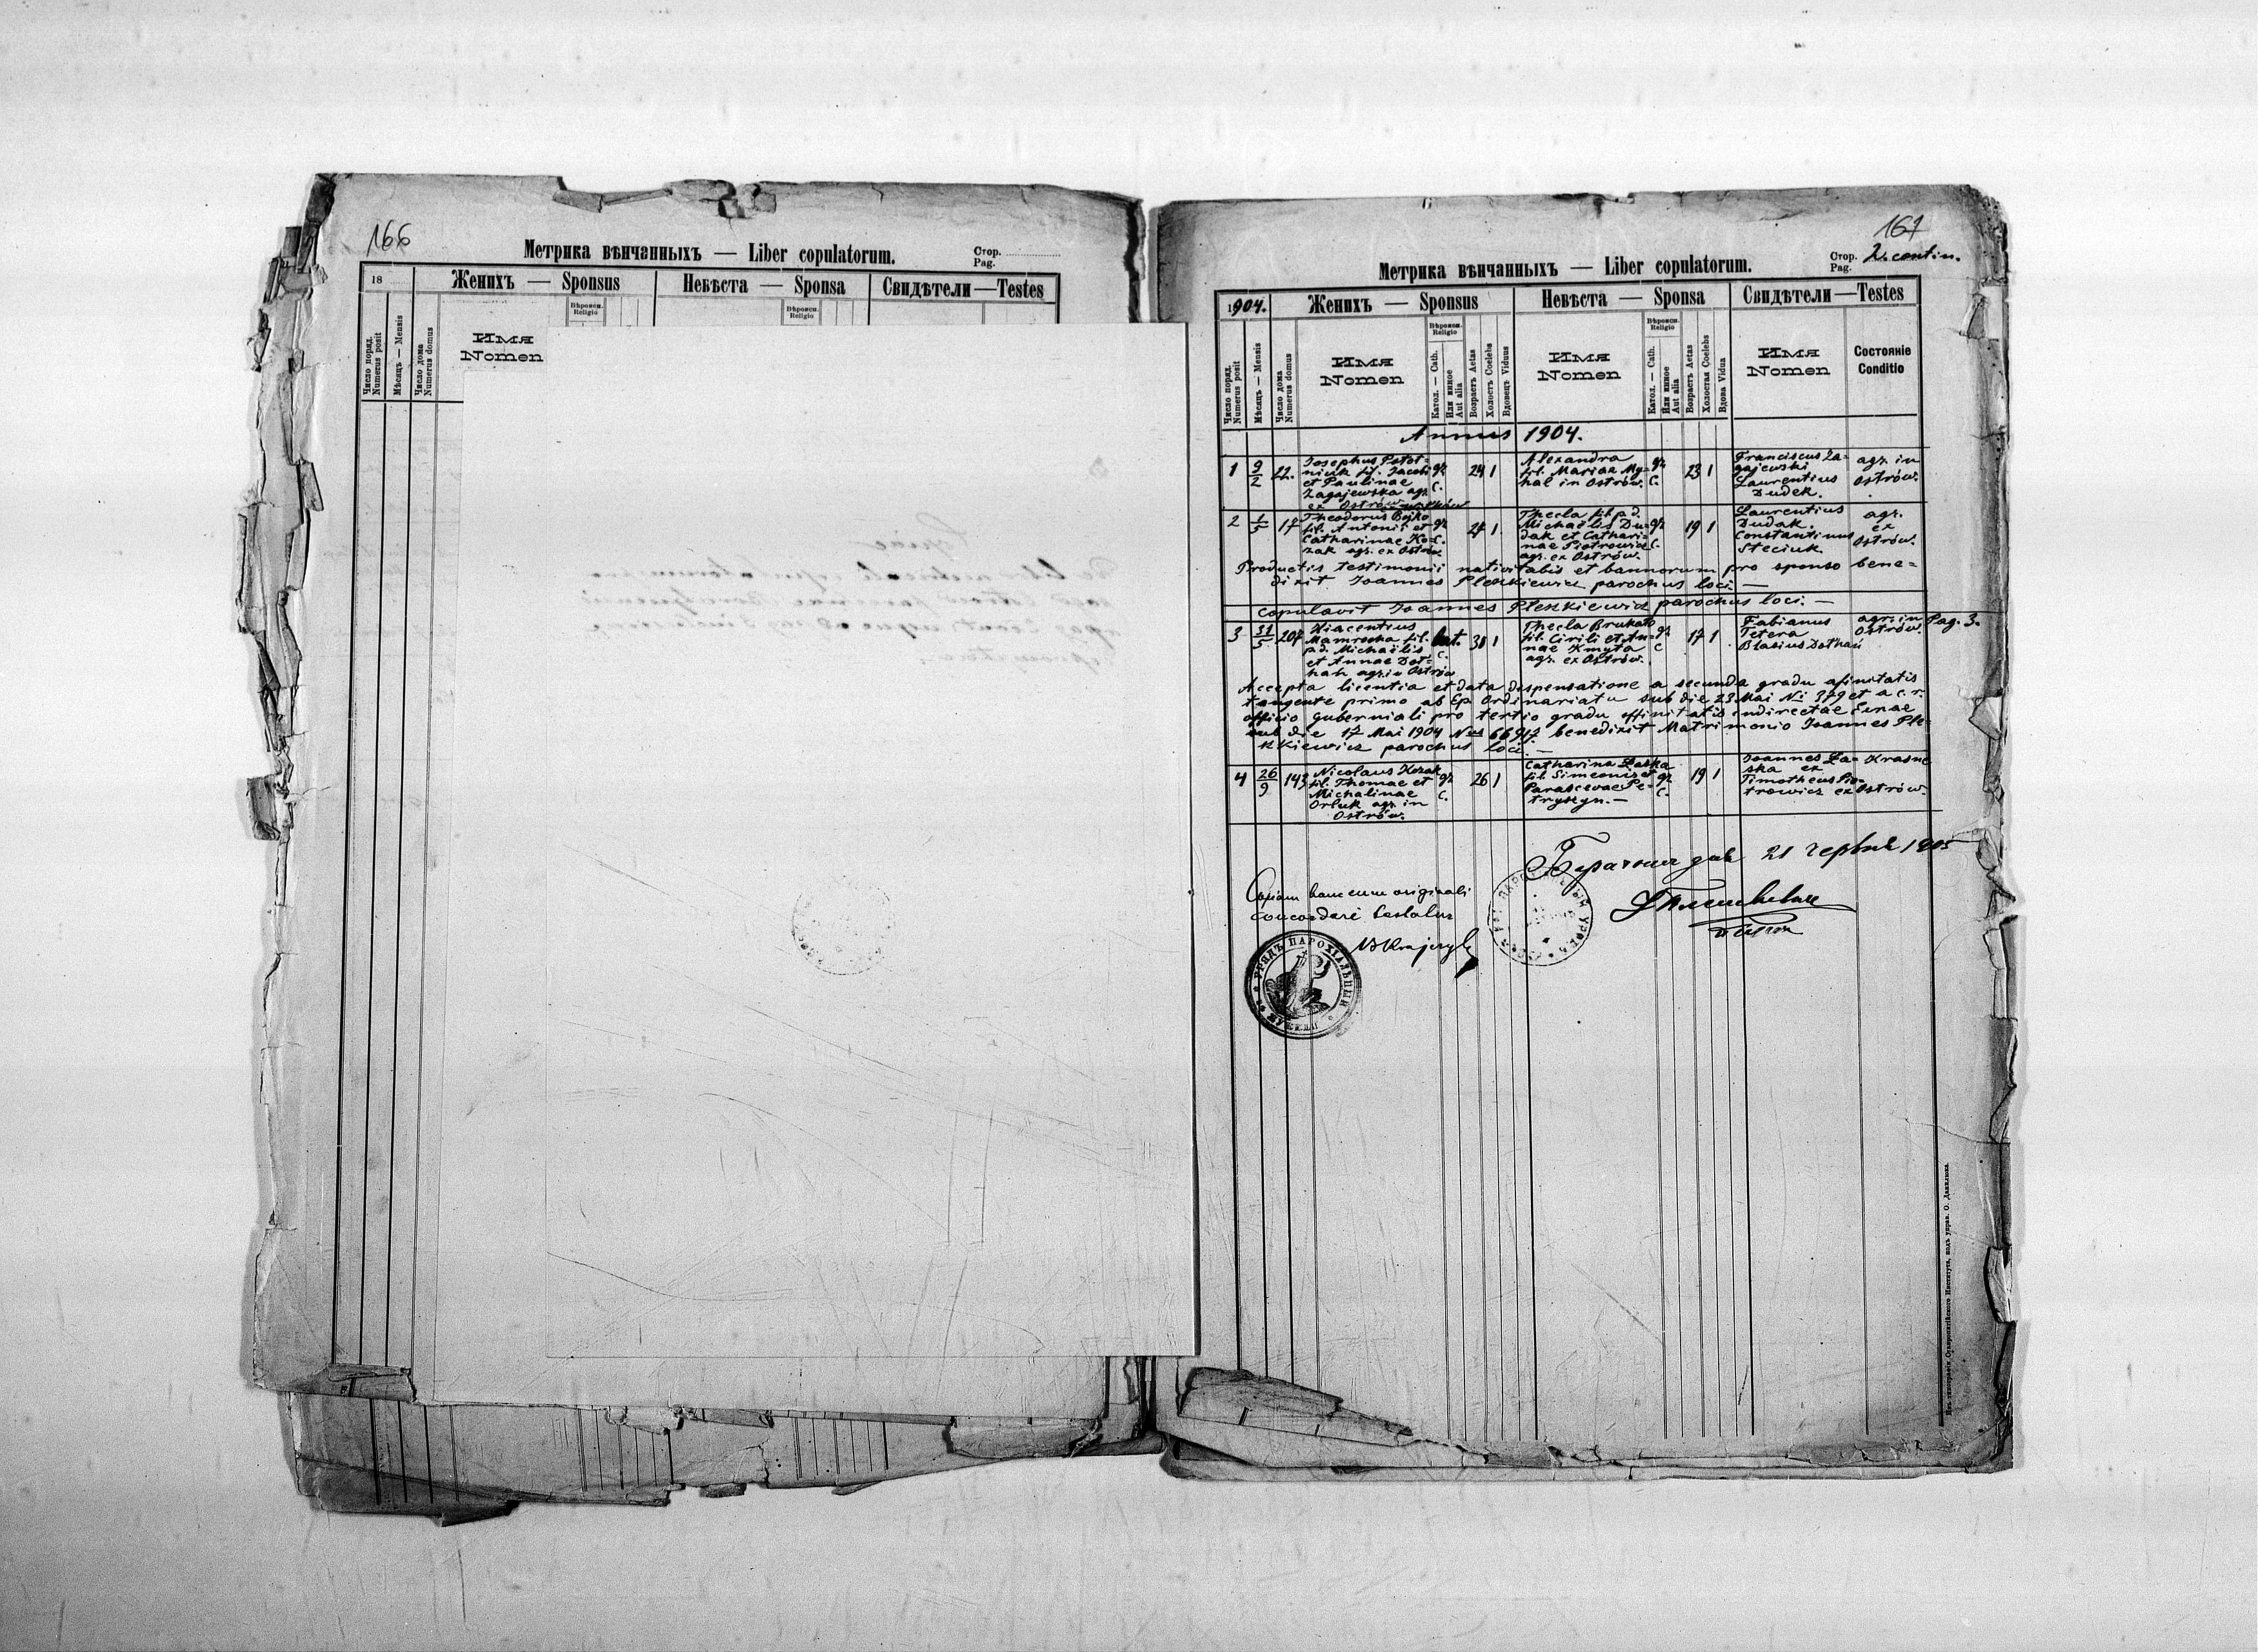 166
Метрика вѣнчанныхъ — Liber copulatorum.
Стор.
Pag.
18
Женихъ — Sponsus
Невѣста — Sponsa
Свидѣтели — Testes
Число поряд.
Numerus posit
Мѣсяцъ — Mensis
Число дома
Numerus domus
Имя
Nomen
Вѣроисп.
Religio
Вѣроисп.
Religio
167
Метрика вѣнчанныхъ — Liber copulatorum.
Стор.
Pag.
2. contin.
1904.
Женихъ — Sponsus
Невѣста — Sponsa
Свидѣтели — Testes
Число поряд.
Numerus posit
Мѣсяцъ — Mensis
Число дома
Numerus domus
Имя
Nomen
Вѣроисп.
Religio
Катол. — Cath.
Или инное
Aut alia
Возрастъ Aetas
Холостъ Coelebs
Вдовецъ Viduus
Имя
Nomen
Вѣроисп.
Religio
Катол. — Cath.
Или инное
Aut alia
Возрастъ Aetas
Холостая Coelebs
Вдова Vidua
Имя
Nomen
Состояніе
Conditio
Annus 1904.
1 9/2 22.
Josephus
niuk fil. Jacobi
et Paulinae
Zagajewska agr.
ex Ostrów
gr. c. 24 1
Alexandra
fil. Mariae My-
hal in Ostrów.
gr. c. 23 1
Franciscus Za-
gajewski
Laurentius
Dudek.
agr. in
Ostrów.
2 1/5 17
Theodorus Bojko
fil. Antonii et
Catharinae Ko-
zak agr. ex Ostrów
gr. c. 27 1
Thecla fil. p. d.
Michaëlis Du-
dak et Cathari-
nae Piotrowicz
agr. ex Ostrów.
gr. c. 19 1
Laurentius
Dudak.
Constantinus
Steciuk
agr.
ex
Ostrów.
Productis testimonii nativitabis et bannorum pro sponso bene=
dixit Joannes Pleszkiewicz parochus loci. —
Copulavit Joannes Pleszkiewicz parochus loci. —
3 31/5 207
Hiacentius
Mamrocha fil.
p. d. Michaëlis
et Annae Dot-
hań agr. in Ostrów
lat. c. 30 1
Thecla
fil. Cirili et An-
nae Kmyta
agr. ex Ostrów.
gr. c 17 1
Fabianus
Tetera
Blasius Dothań
agr. in
Ostrów.
Pag. 3.
Accepta licentia et data dispensatione a secunda gradu afinitatis
tangente primo ab Ep. Ordinariatu sub die 23. Mai № 379 et a c. r.
officio guberniali pro tertio gradu affinitatis indirectae
sub die 17 Mai 1904 benedixit Matrimonio Joannes Ple-
szkiewicz parochus loci. —
4 26/9 143
Nicolaus Kozak
fil. Thomae et
Michalinae
Orluk agr. in
Ostrów.
gr. c. 26 1
Catharina Laska
fil. Simeonis et
Parascevae Pe-
tryszyn. —
gr. c. 19 1
Joannes La-
ska ex
Timotheus Pio-
trowicz ex
Krasne
Ostrów.
дня 21 червня 1905
Copiam hanc cum originali
concordare testatur
УРЯДЪ ПАРОХІАЛЬНЫЙ
Изъ типографіи Ставропигійского Института, подъ управ. О. Данилюка